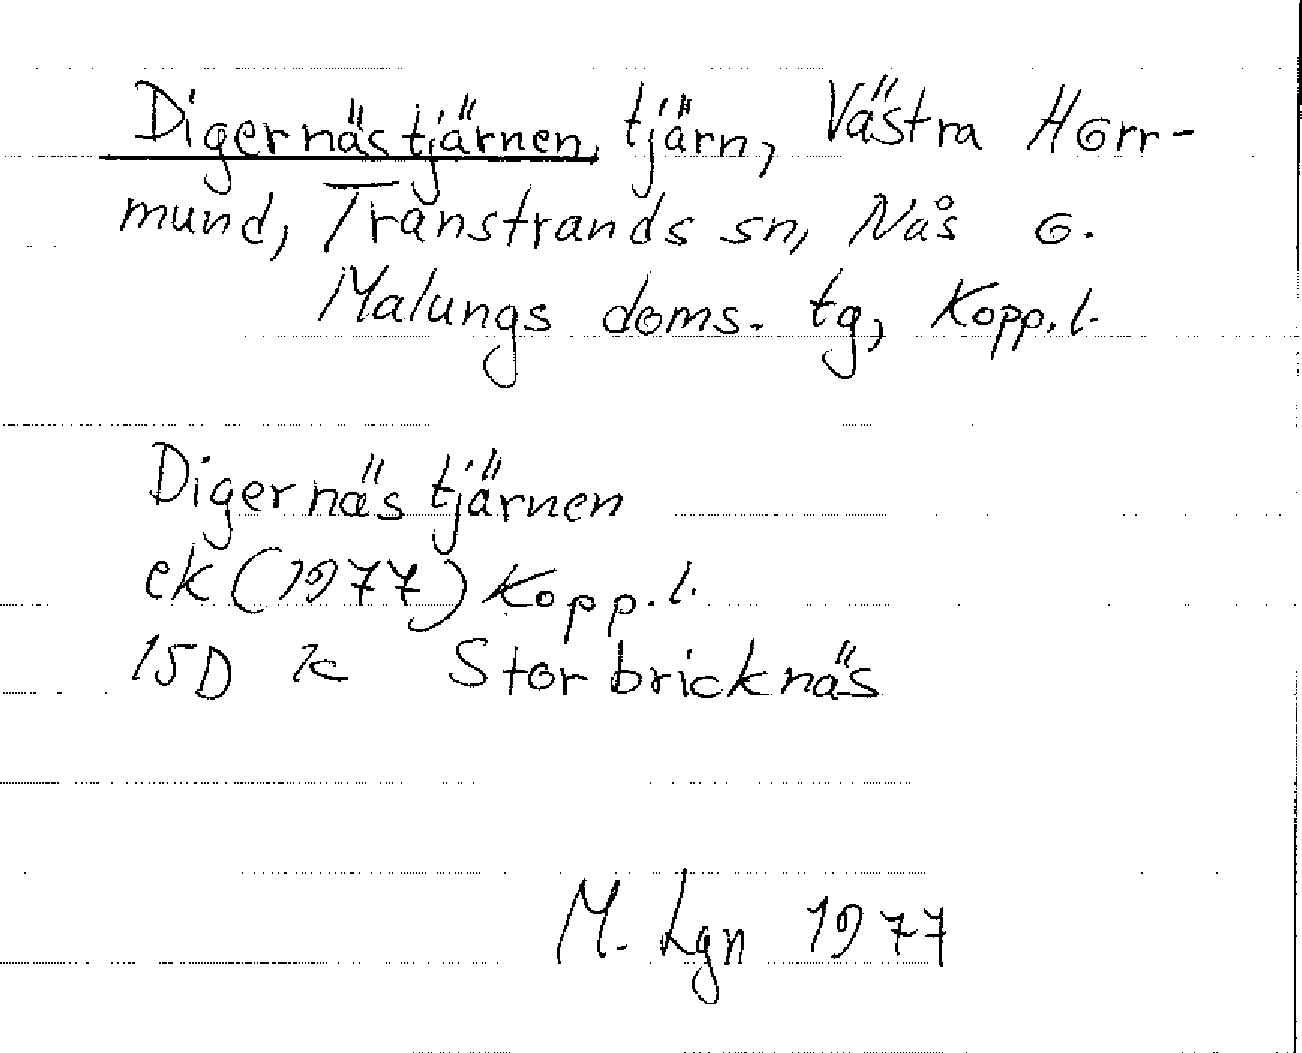 Digernästjärnen, tjärn, Västra Horr-
mund, Transtrands sn, Nås o.
Malungs doms. tg, Kopp. l.
Digernästjärnen
ek (1977) Kopp. l.
15D 7c Storbricknäs
M. Lgn 1977